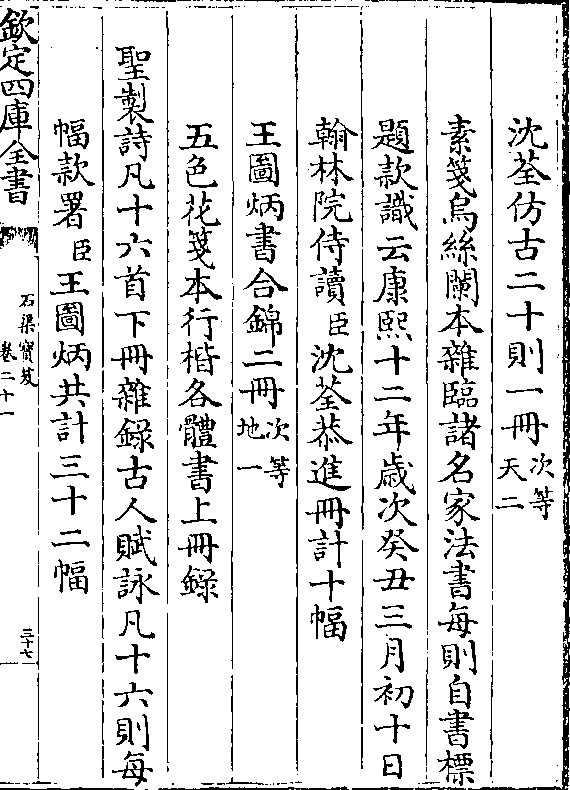 沈荃仿古二十則一冊次等天二
素箋烏絲闌本雜臨諸名家法書每則自書標
題款識云康熙十二年歳次癸丑三月初十日
翰林院侍讀臣沈荃恭進冊計十幅
王圖炳書合錦二冊次等地一
五色花箋本行楷各體書上冊錄
聖製詩凡十六首下冊雜錄古人賦詠凡十六則每
幅款署臣王圖炳共計三十二幅
欽定四庫全書
石渠寳笈
卷二十一
三十七